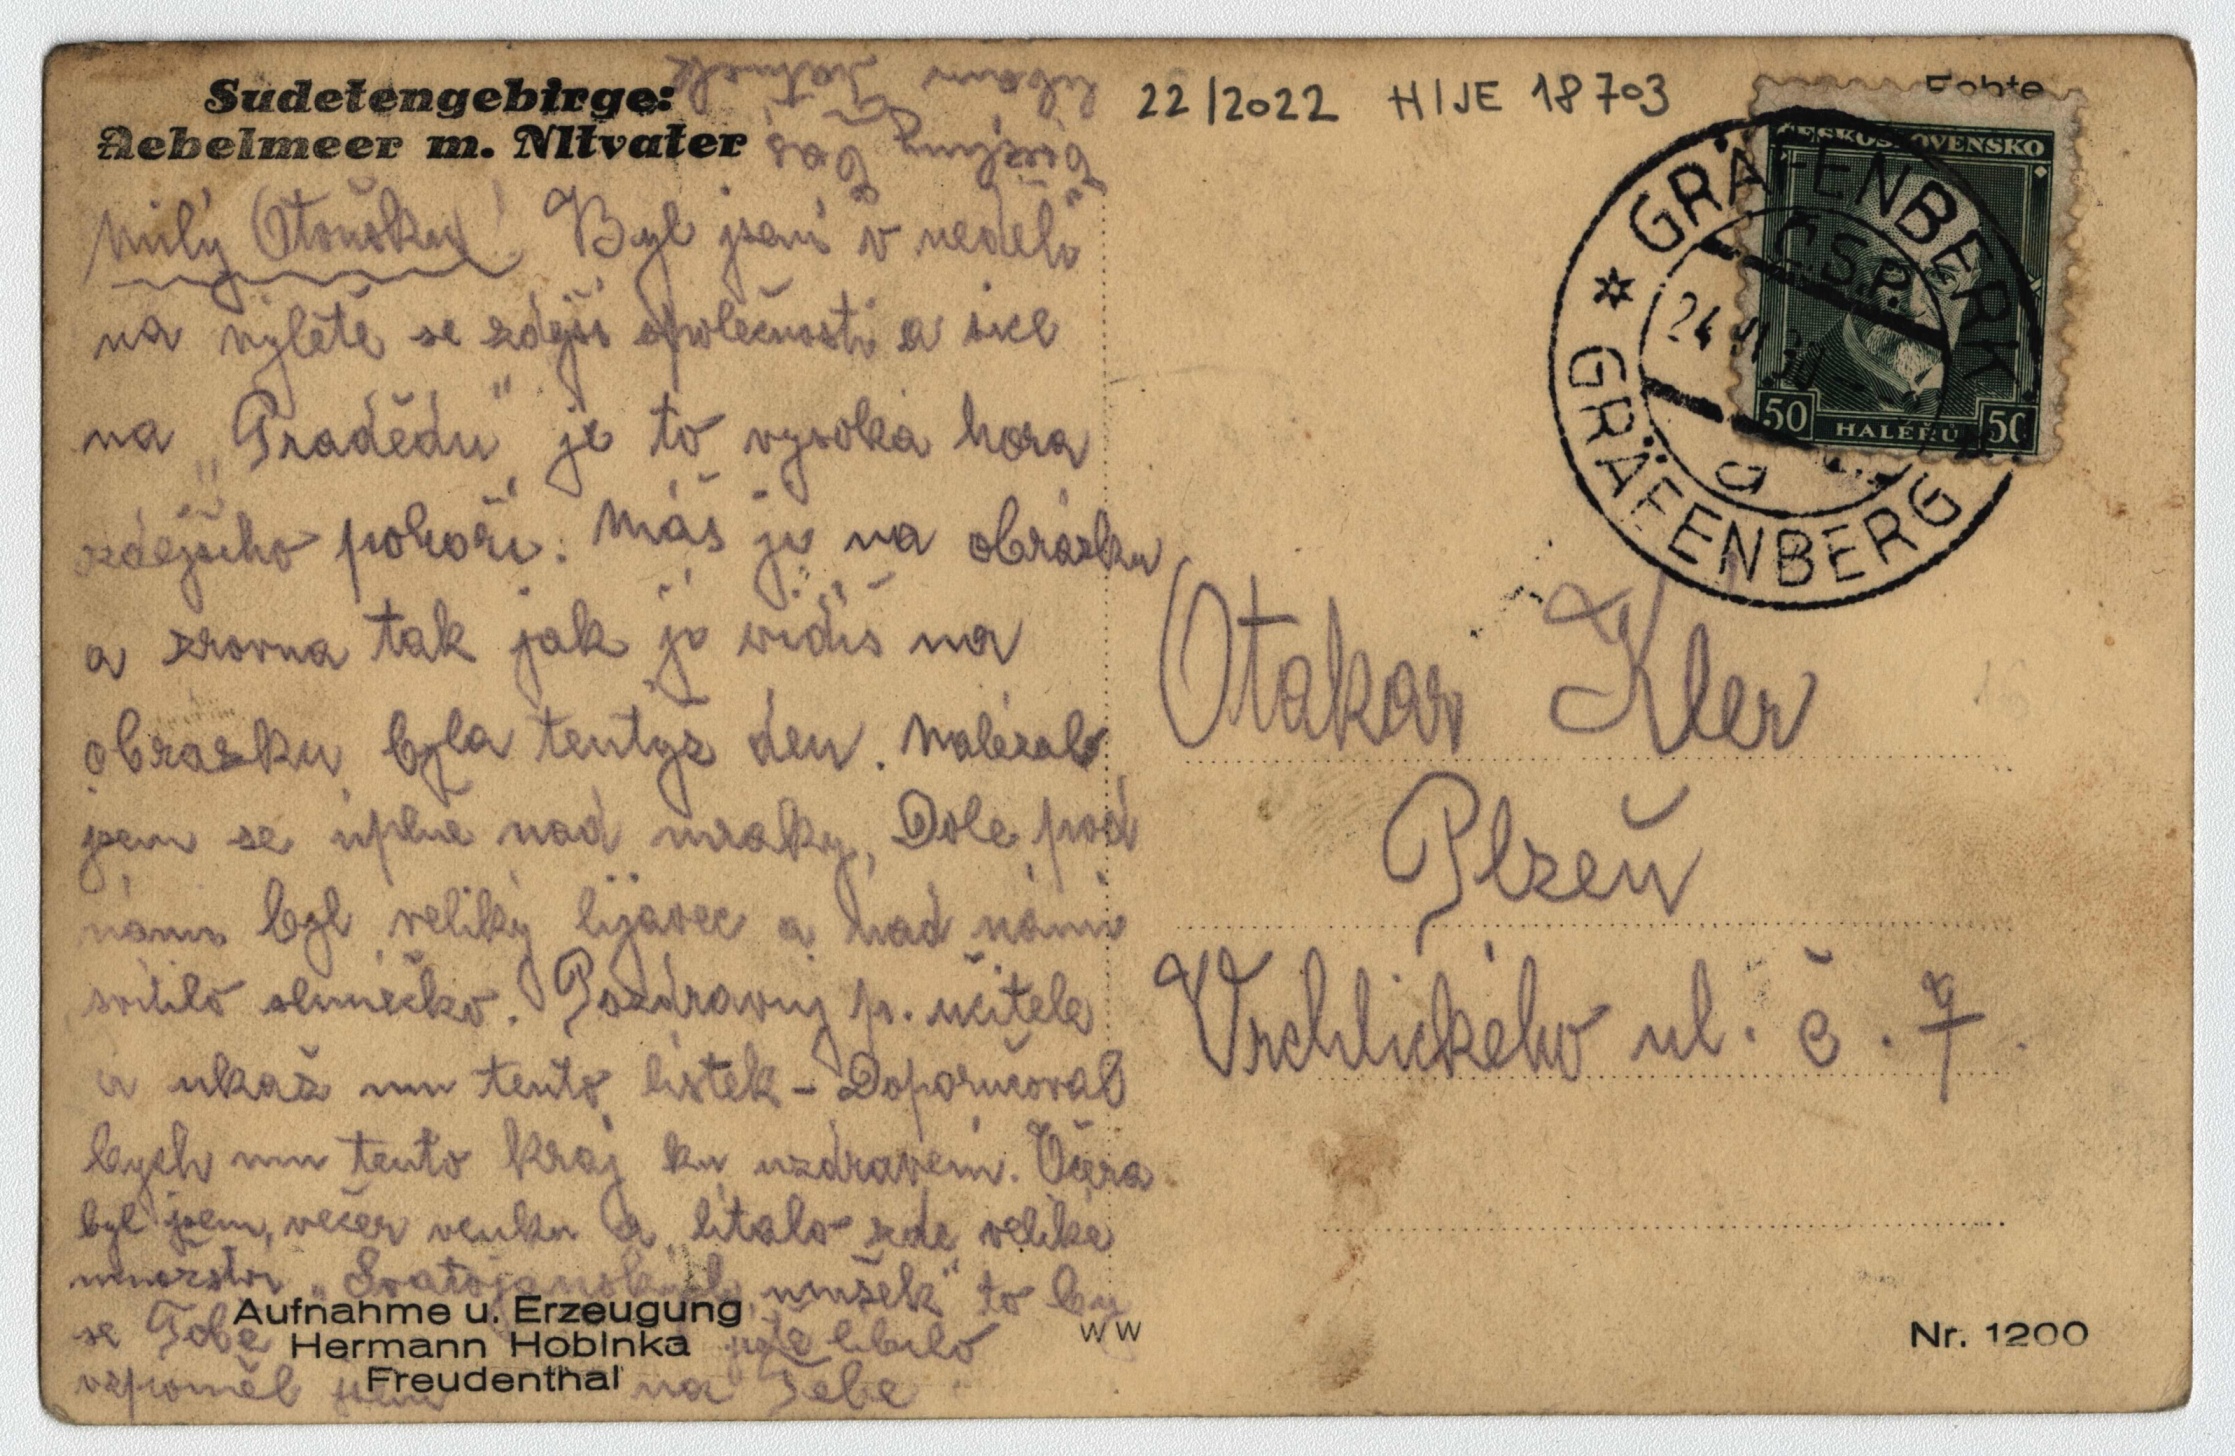 Sudetengebirge:
Nebelmeer m. Altvater
22/2022 H/JE 18703
Echte
ČESKOSLOVENSKO
50 HALÉŘŮ 50
GRÄFENBERK
Č.S.P.
24
GRÄFENBERG
Milý Otoušku! Byl jsem v neděli
na výletě se zdejší společností a sice
na „Pradědu" je to vysoká hora
zdejšího pohoří. Máš ji na obrázku
a zrovna tak jak ji vidíš na
obrázku byla tentýž den. Nalézali
jsem se úplně nad mraky. Dole pod
námi byl veliký lijavec a nad námi
svítilo sluníčko. Pozdravuj p. učitele
a ukaž mu tento lístek – Doporučoval
bych mu tento kraj ku uzdravení. Včera
byl jsem večer venku a lítalo zde veliké
množství „Svatojanských mušek" to by
se Tobě jistě líbilo
vzpoměl jsem na Tebe.
Otakar Kler
Plzeň
Vrchlického ul. č. 7.
Aufnahme u. Erzeugung
Hermann Hobinka
Freudenthal
WW
Nr. 1200